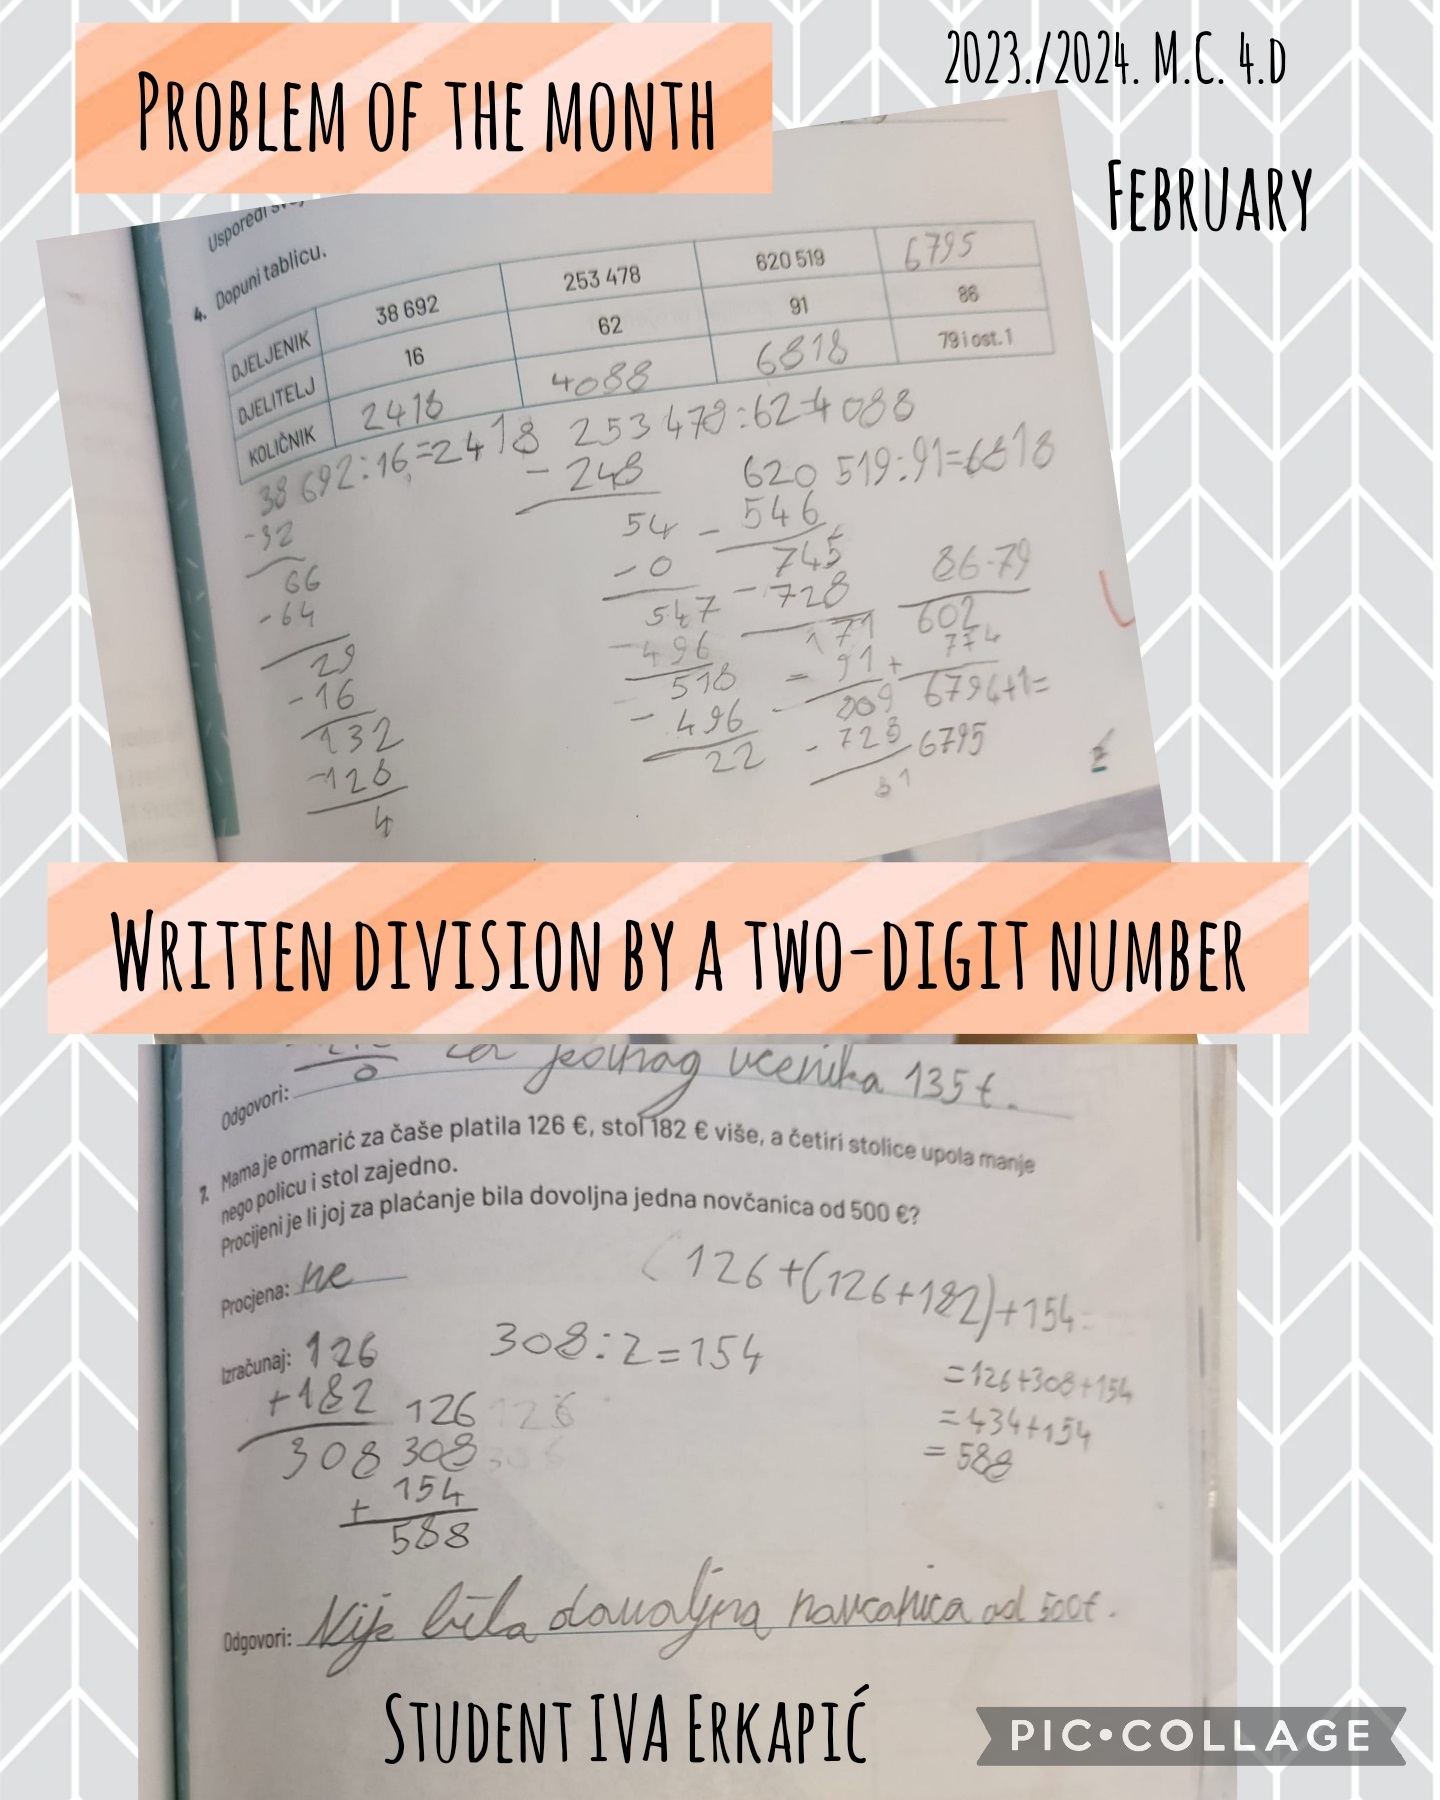 2023./2024. M.C. 4.D
PROBLEM OF THE MONTH
FEBRUARY
Usporedi
4. Dopuni tablicu.
DJELJENIK 38 692 253 478 620 519 6795
DJELITELJ 16 62 91 86
KOLIČNIK 2418 4088 6818 79 i ost. 1
38 692:16=2418 253 478:62=4088
-32 - 248 620 519:91=6818
66 54 - 546
-64 - 0 745 86·79
29 547 - 728 602
-16 - 496 171 774
132 518 - 91 + 6794+1=
-128 - 496 809 6795
4 22 - 728
81
WRITTEN DIVISION BY A TWO-DIGIT NUMBER
0
Odgovori: za jednog učenika 135€.
7. Mama je ormarić za čaše platila 126 €, stol 182 € više, a četiri stolice upola manje
nego policu i stol zajedno.
Procijeni je li joj za plaćanje bila dovoljna jedna novčanica od 500 €?
Procjena: ne
(126+(126+182)+154=
Izračunaj: 126 308:2=154
=126+308+154
+182 126 126
=434+154
308 308 306
=588
+ 154
588
Odgovori: Nije bila dovoljna novčanica od 500€.
STUDENT IVA ERKAPIĆ
PIC•COLLAGE